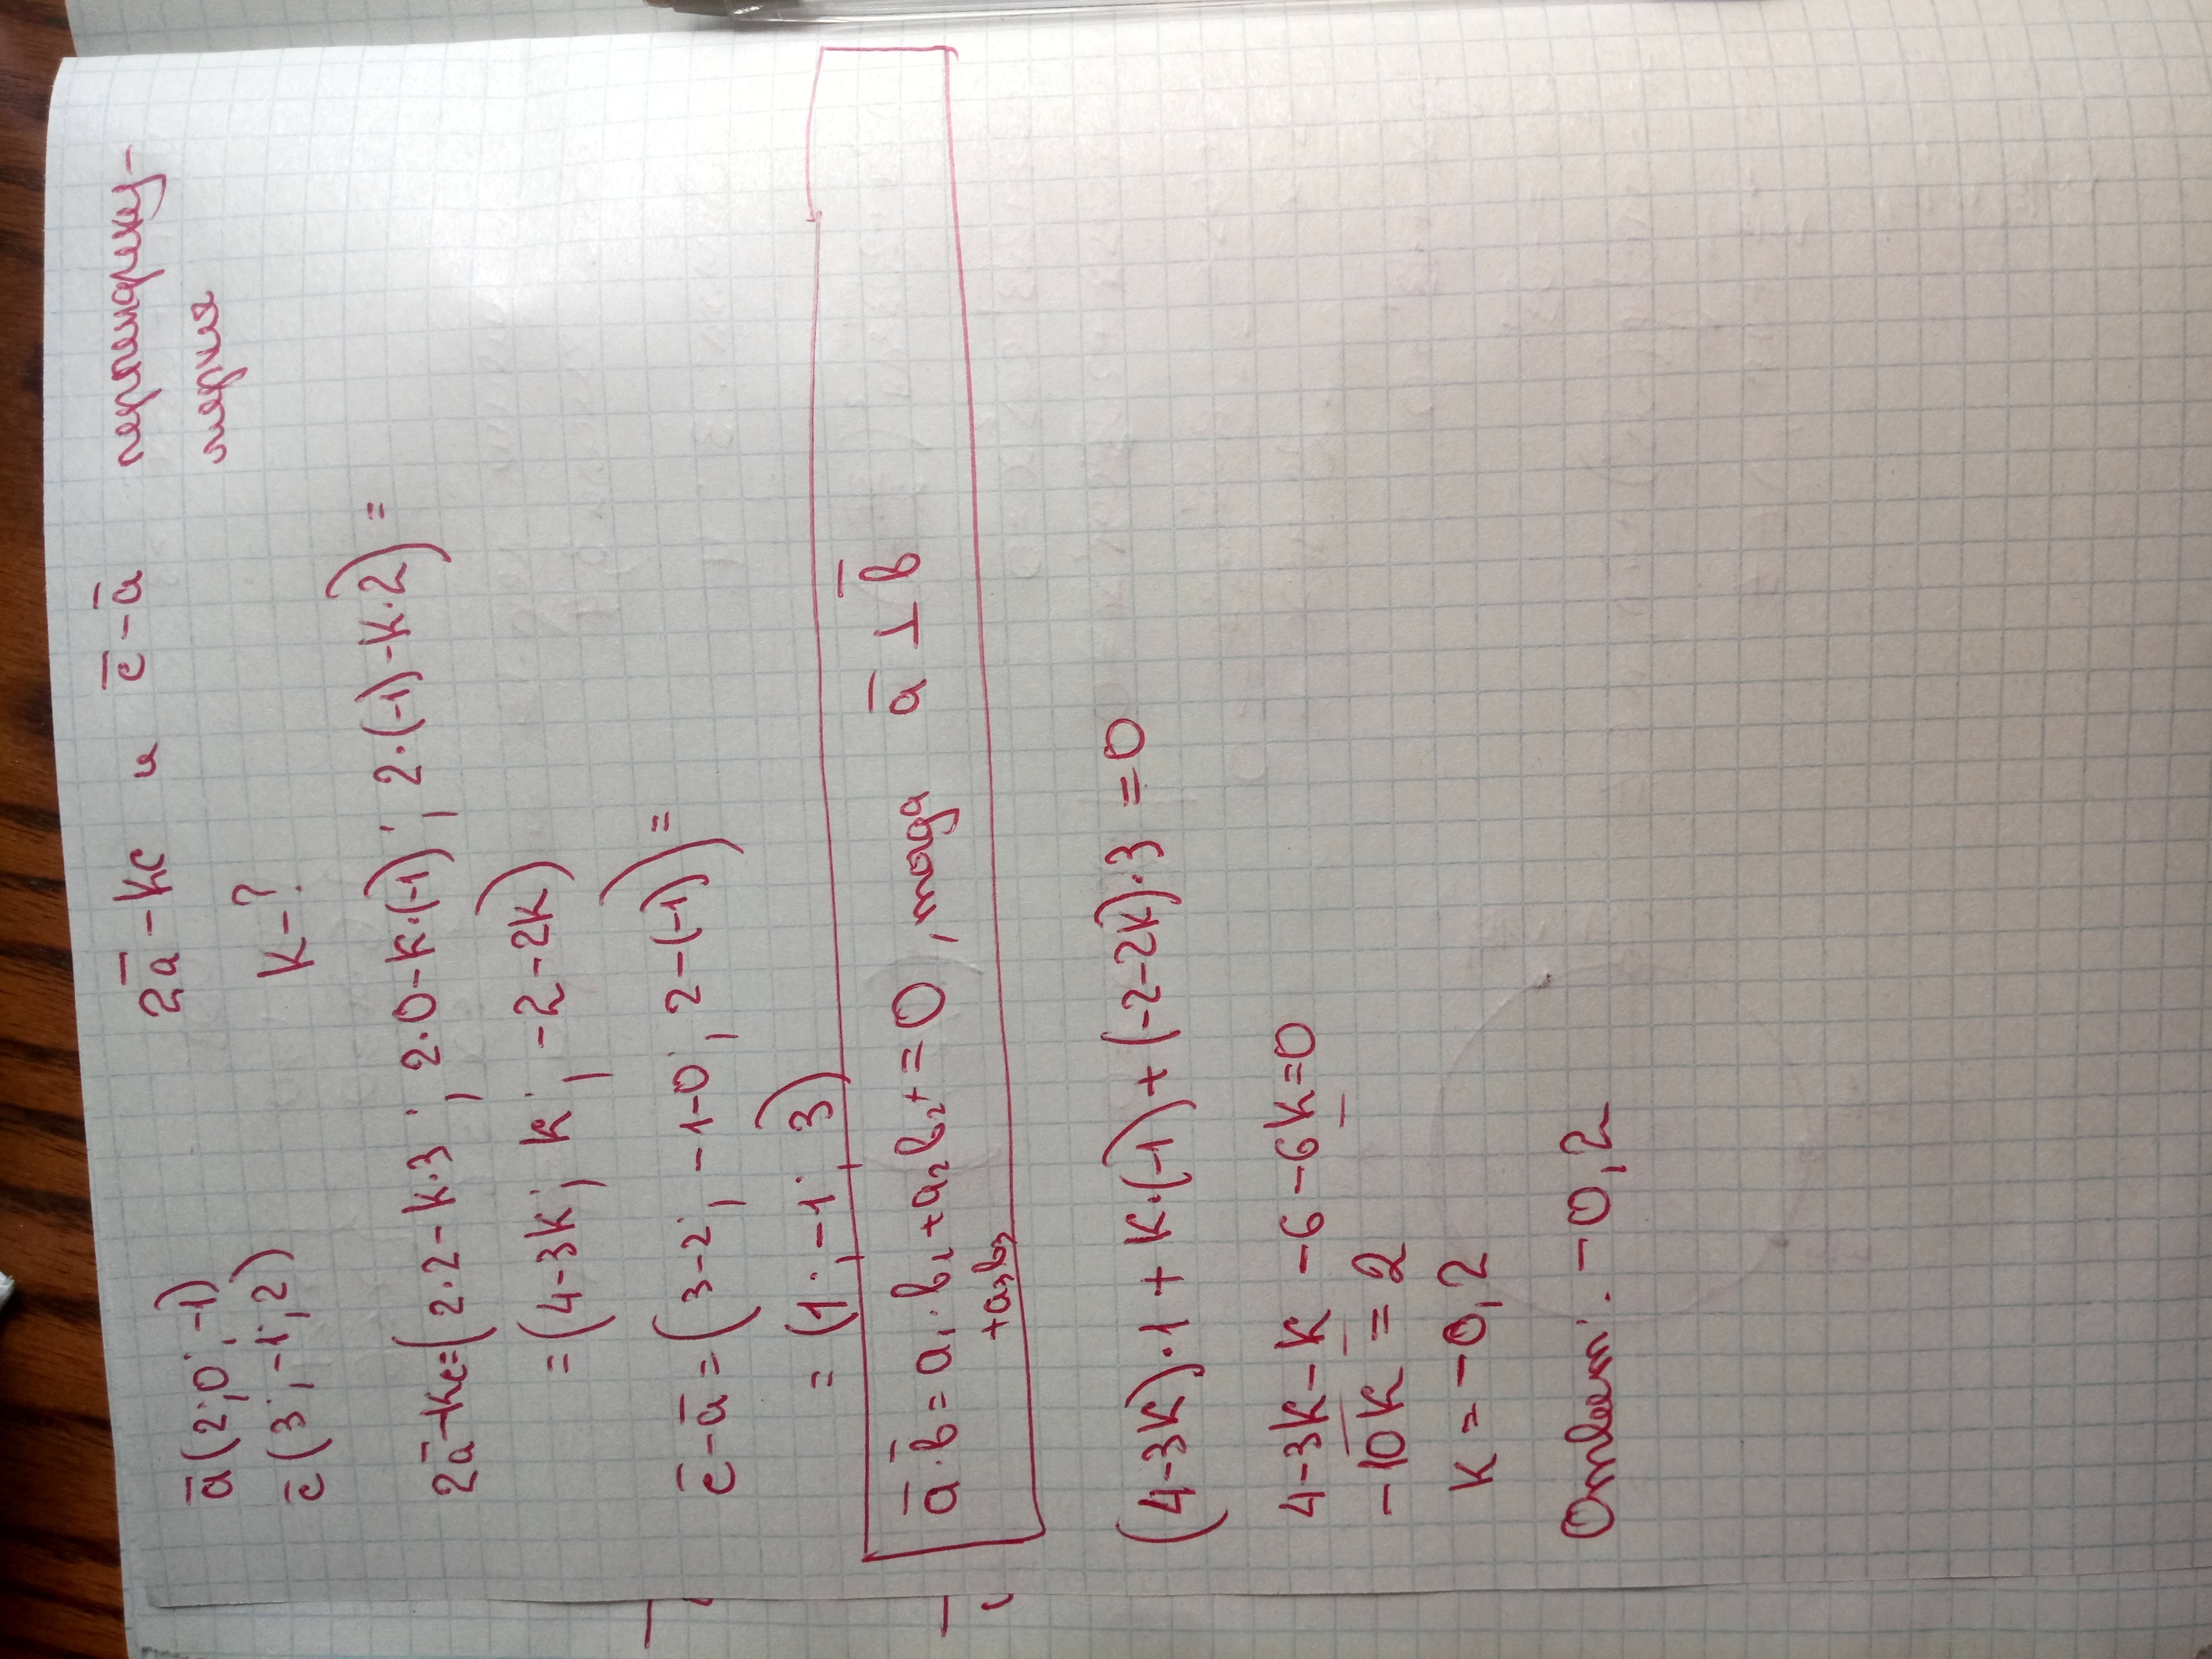 a̅ (2; 0; -1) 2a̅ - kc и c̅ - a̅ перпендику-
c̅ (3; -1; 2) k - ? лярия
2a̅ - kc = (2·2 - k·3; 2·0 - k·(-1); 2·(-1) - k·2) =
= (4-3k; k; -2-2k)
c̅ - a̅ = (3-2; -1-0; 2-(-1)) =
= (1; -1; 3)
a̅·b̅ = a₁·b₁ + a₂b₂ + = 0, тогда a̅ ⊥ b̅
+ a₃b₃
(4-3k)·1 + k·(-1) + (-2-2k)·3 = 0
4 - 3k - k - 6 - 6k = 0
-10k = 2
k = -0,2
Ответ: -0,2